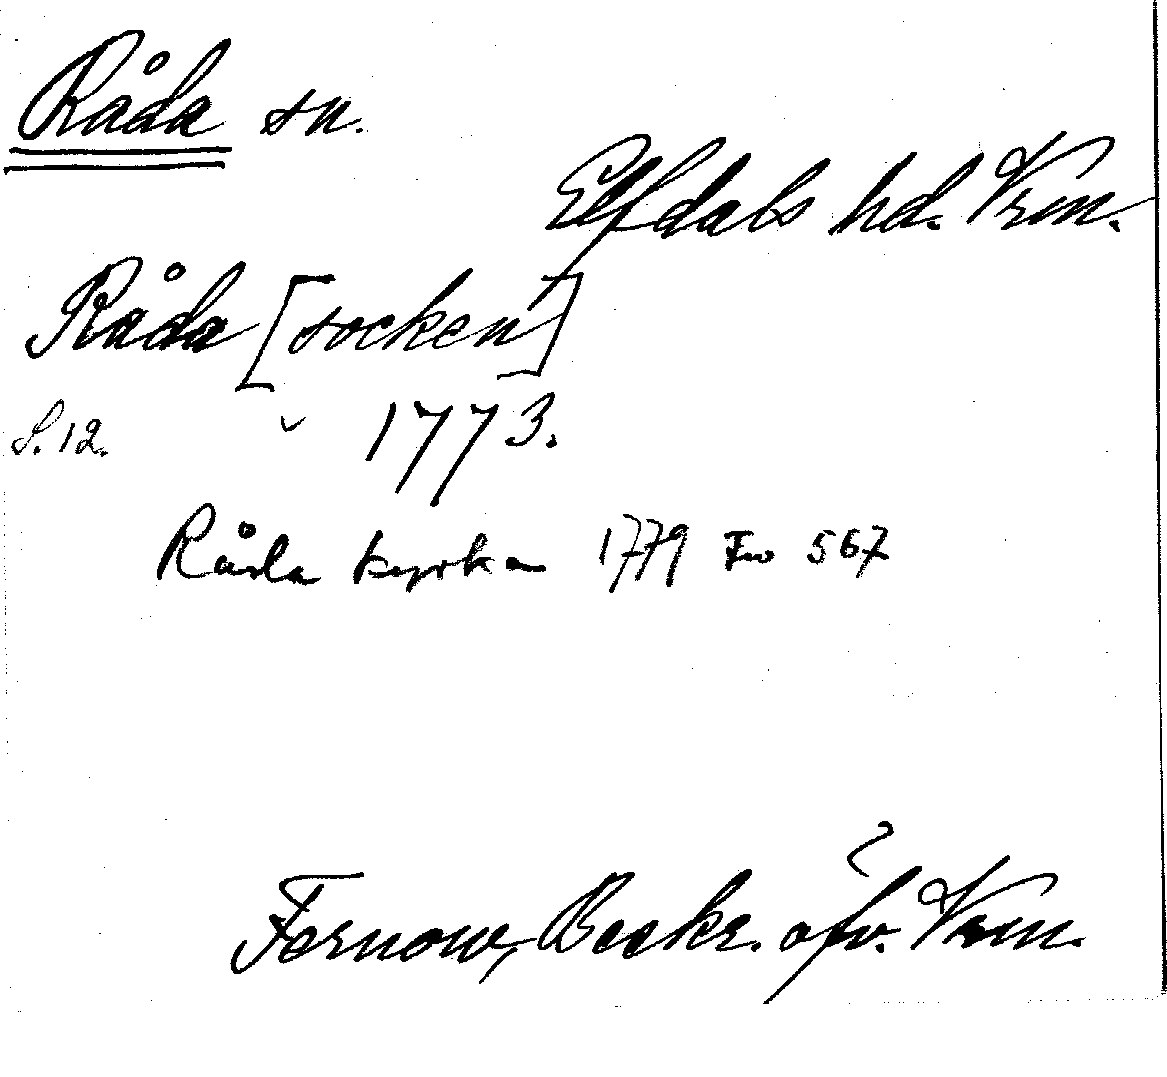 Råda sn.
Elfdals hd. Vrm.
Råda [socken]
S. 12. 1773.
Råda kyrka 1779 Fw 567
Fernow, Beskr. öfv. Vrm.